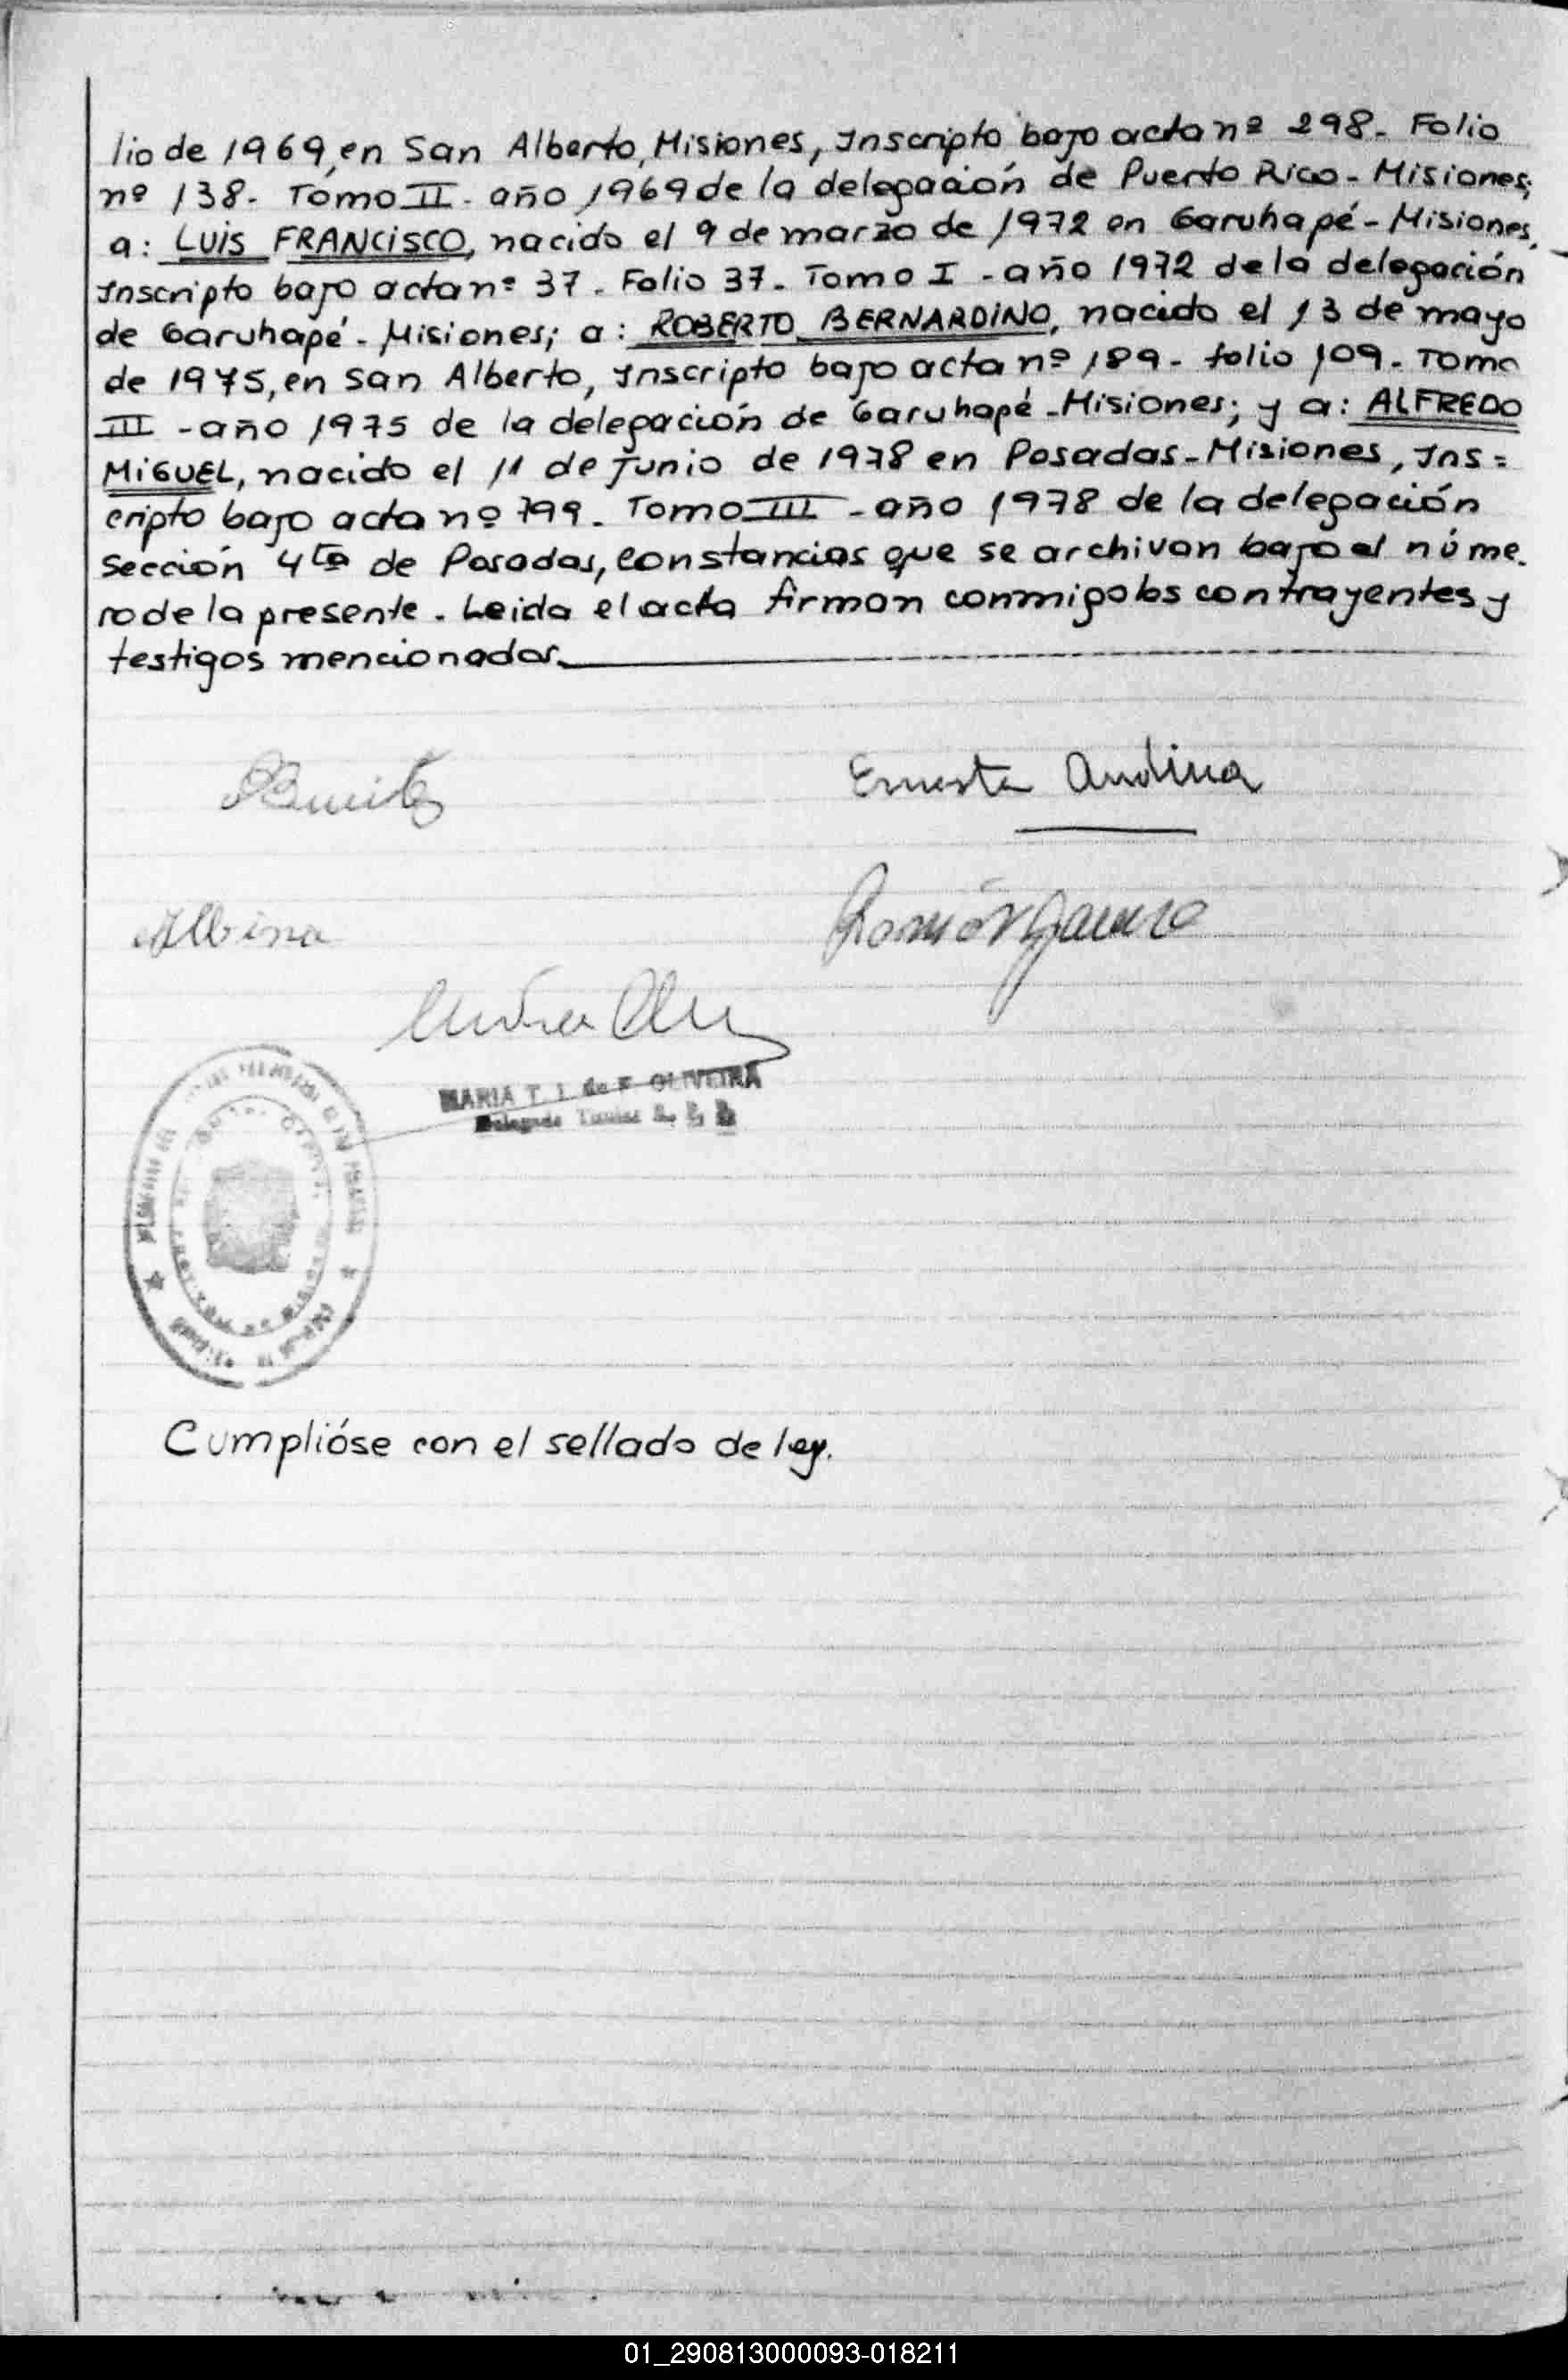 lio de 1969, en San Alberto, Misiones, Inscripto bajo acta nº 298. Folio
nº 138. Tomo II. año 1969 de la delegación de Puerto Rico - Misiones;
a: LUIS FRANCISCO, nacido el 9 de marzo de 1972 en Garuhapé - Misiones,
Inscripto bajo acta nº 37. Folio 37. Tomo I - año 1972 de la delegación
de Garuhapé - Misiones; a: ROBERTO BERNARDINO, nacido el 13 de mayo
de 1975, en San Alberto, Inscripto bajo acta nº 189. folio 109. Tomo
III - año 1975 de la delegación de Garuhapé - Misiones; y a: ALFREDO
MIGUEL, nacido el 11 de Junio de 1978 en Posadas - Misiones, Ins=
cripto bajo acta nº 799. Tomo III - año 1978 de la delegación
Sección 4ta de Posadas, constancias que se archivan bajo el núme.
ro de la presente. Leida el acta firman conmigo los contrayentes y
testigos mencionados.
Benitez
Ernesta Andina
Albina
Ramón
MARIA T. I. de F. OLIVEIRA
Cumplióse con el sellado de ley.
01_290813000093-018211